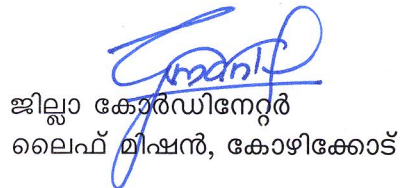 ജില്ലാ കോർഡിനേറ്റർ
ലൈഫ് മിഷൻ, കോഴിക്കോട്